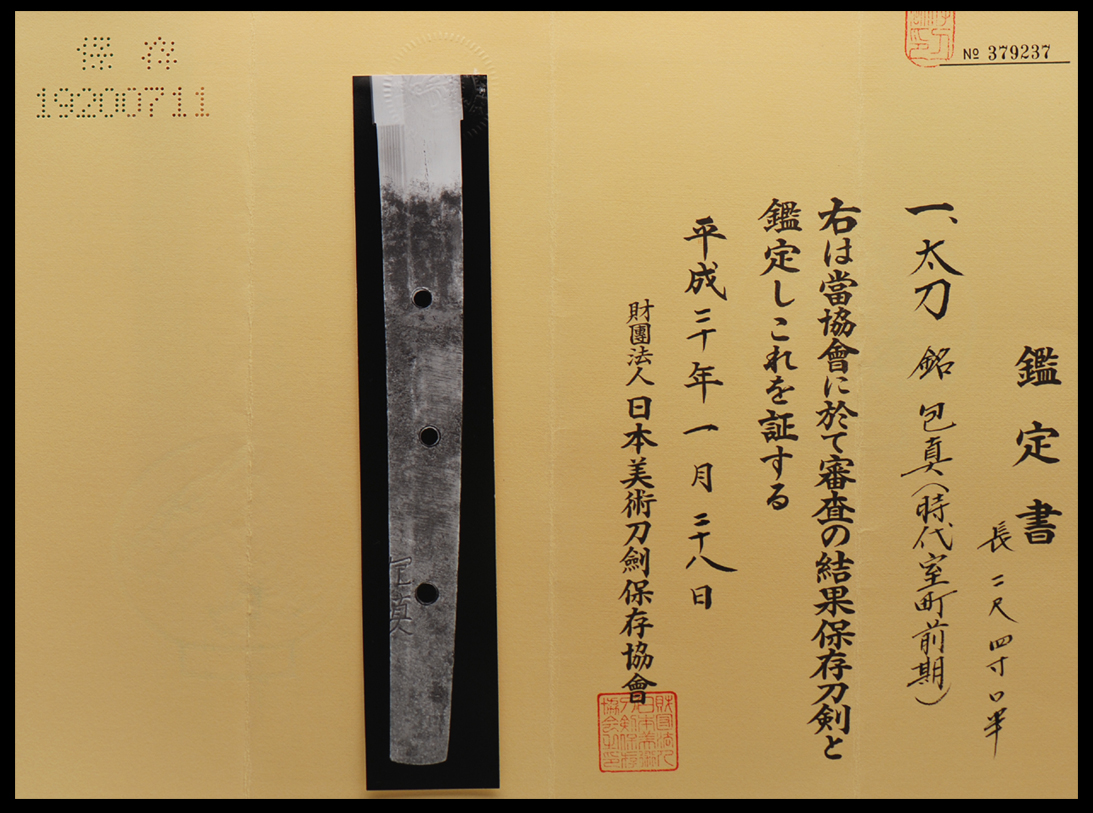 № 379237
鑑定書
長 二尺四寸〇半
一、太刀 銘 包真(時代室町前期)
右は當協會に於て審査の結果保存刀剣と
鑑定しこれを証する
平成二十年一月二十八日
財團法人日本美術刀劍保存協會
財団法人
日本美術
刀剣保存
協会之印
包真
保存
19200711